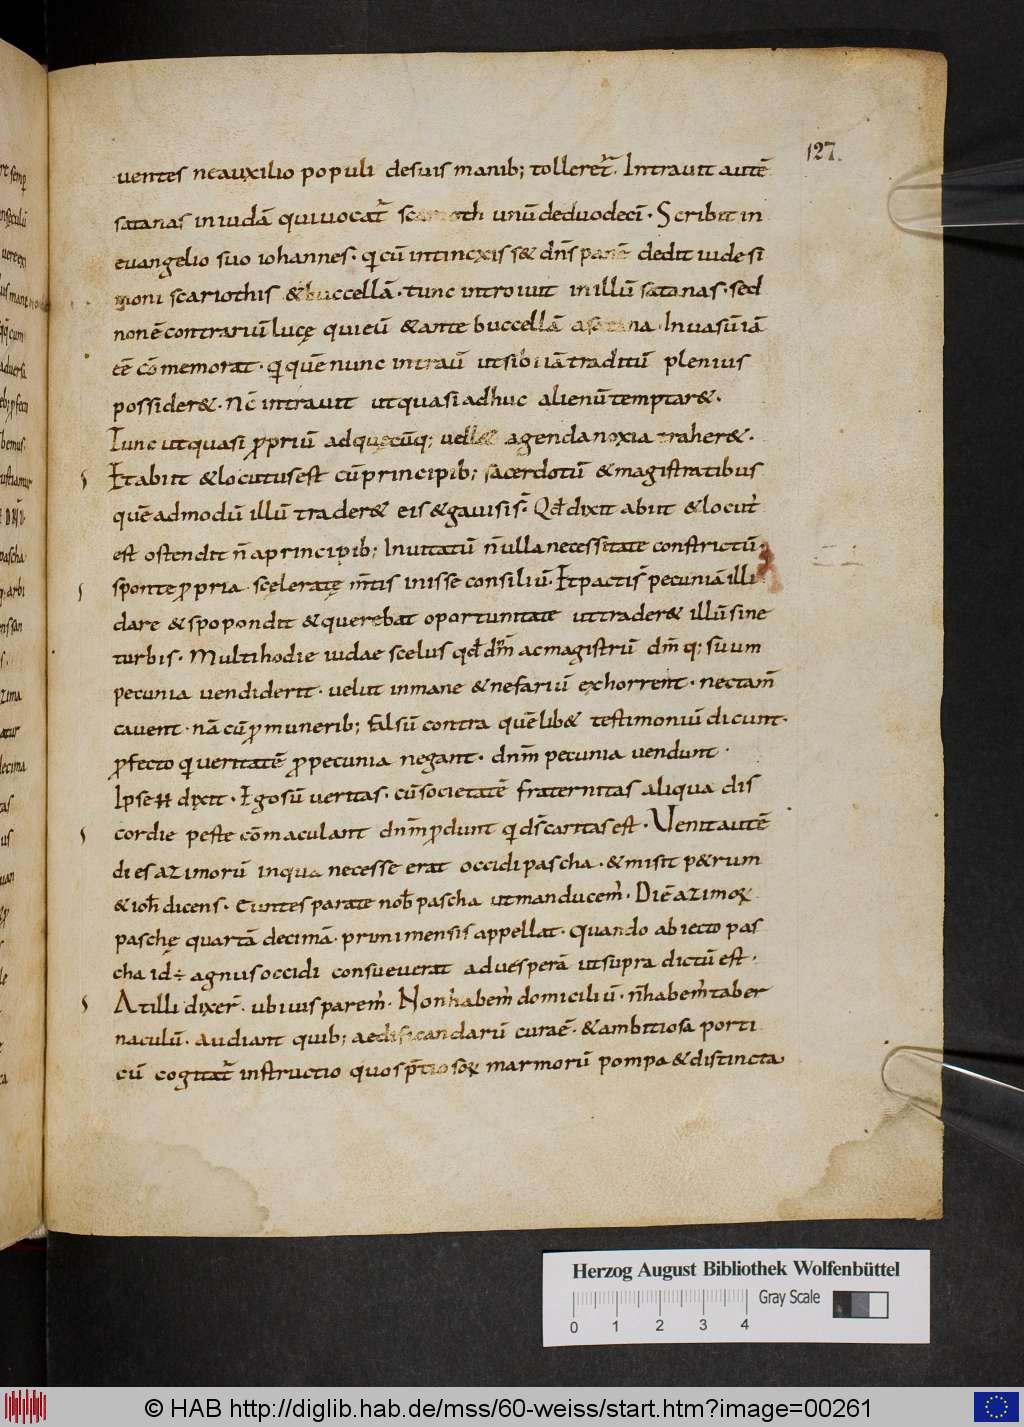 127.
uentes neauxilio populi desuis manib; tolleret̄. Intrauit autē
satanas iniudā quiuocat̄ unū deduodecī. Scribit in
euangelio suo iohannes. qi cū intincxiss& dn̄s panē dedit iude si
moni scariothis & buccellā. tunc introiuit inillū satanas. sed
nonē contrariū lucę quieū &ante buccellā asatana. Inuasū iā
eē cōmemorat. qi quē nunc intrauī utsibi iā traditū plenius
possider&. Nc̄ intrauit utquasi adhuc alienū temptar&.
Tunc utquasi ꝓpriū adquęcūq; uell& agenda noxia traher&.
Et abiit &locutusest cū principib; sacerdotū &magistratibus
quē admodū illū trader& eis &gauisis̄. Qd̄ dixit abiit &locut᷒
est ostendit n̄ aprincipib; Inuitatū n̄ulla necessitate constrictū.
sponte propria scęleratę m̄tis inisse consiliū. Et pactis̄ pecuniā illi
dare &spopondit &querebat oportunitate uttrader& illū sine
turbis. Multi hodie iudae scelus qd̄ dn̄m acmagistrū dm̄ q; suum
pecunia uendiderit. uelut inmane &nefariū exhorrent. nectam̄
cauent. nā cū ꝓ munerib; falsū contra quēlib& testimoniū dicunt.
ꝓfecto qi ueritatē ꝓ pecunia negant. dnm̄ pecunia uendunt.
Ipse H dixit. Ego sū ueritas. cū societatē fraternitas aliqua dis
cordie peste cōmaculant dnm̄ ꝓdunt qi ds̄ caritas est. Uenit autē
dies azimorū inqua necesse erat occidi pascha. &misit p&rum
&ioh̄ dicens. Euntes parate nob̄ pascha utmanducem᷒. Diē azimoꝝ
paschę quartā decimā. primi mensis appellat. quando abiecto pas
cha id ÷ agnus occidi consueuerat aduesperā utsupra dictū est.
Atilli dixer̄. ubiuis parem᷒. Non habem᷒ domiciliū. n̄habem᷒ taber
naculū. Audiant quib; aedificandarū curaē. &ambitiosa porti
cū cogitat̄ instructio quos p̄tiosoꝝ marmorū pompa &distincta
Herzog August Bibliothek Wolfenbüttel
Gray Scale
0 1 2 3 4
© HAB http://diglib.hab.de/mss/60-weiss/start.htm?image=00261